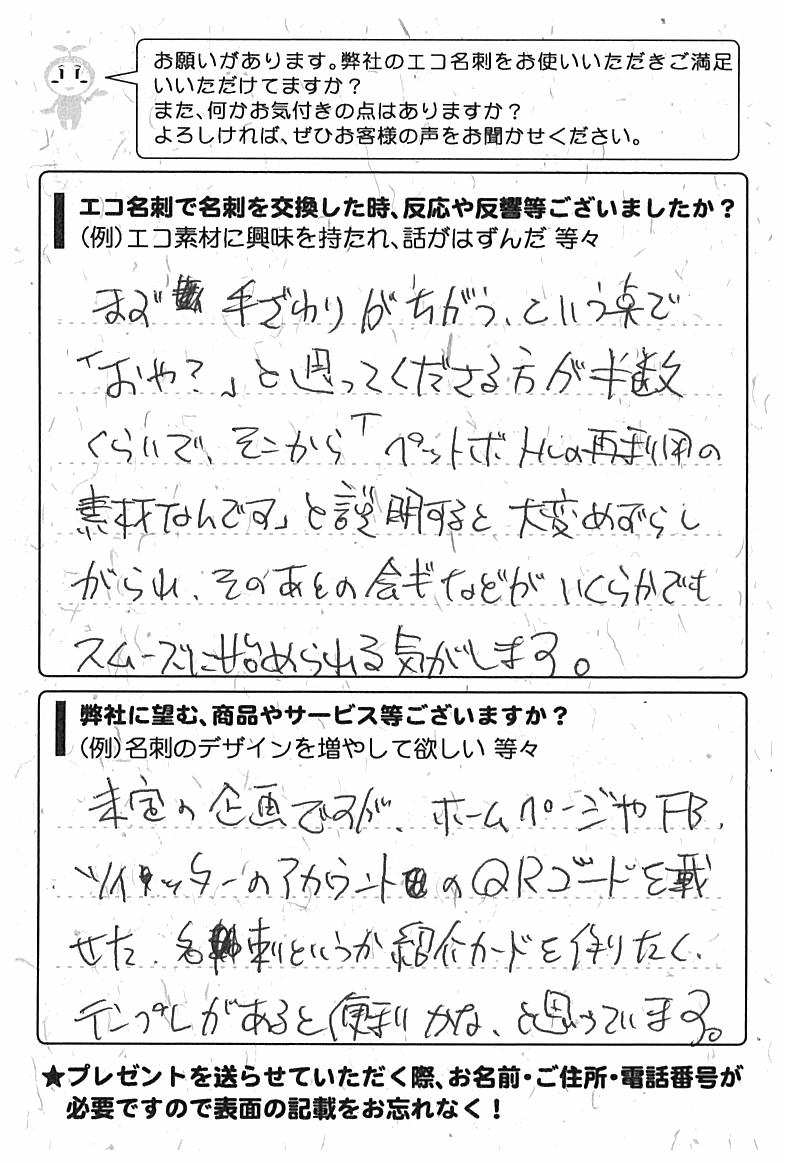 お願いがあります。弊社のエコ名刺をお使いいただきご満足
いいただけてますか?
また、何かお気付きの点はありますか?
よろしければ、ぜひお客様の声をお聞かせください。
エコ名刺で名刺を交換した時、反応や反響等ございましたか?
(例)エコ素材に興味を持たれ、話がはずんだ 等々
まず 手ざわりがちがう、という点で
「おや?」と思ってくださる方が半数
くらいで、そこから「ペットボトルの再利用の
素材なんです」と説明すると大変めずらし
がられ、そのあとの会ギなどがいくらかでも
スムーズに始められる気がします。
弊社に望む、商品やサービス等ございますか?
(例)名刺のデザインを増やして欲しい 等々
未定の企画ですが、ホームページやFB、
ツイッターのアカウントのQRコードを載
せた、名刺というか紹介カードを作りたく、
テンプレがあると便利かな、と思っています。
★プレゼントを送らせていただく際、お名前・ご住所・電話番号が
必要ですので表面の記載をお忘れなく!